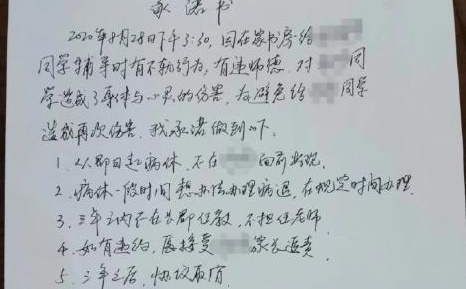 承诺书
2020年8月28日下午3:30,因在家书房给
同学辅导时有不轨行为,有违师德.对 同
学造成了身体与心灵的伤害,为避免给 同学
造成再次伤害,我承诺做到以下.
1.从即日起病休,不在 面前出现.
2.病休一段时间想办法办理病退,在规定时间办理.
3.三年之内不在 任教,不担任老师
4.如有违约,愿接受 家长追责
5.三年之后,协议取消.